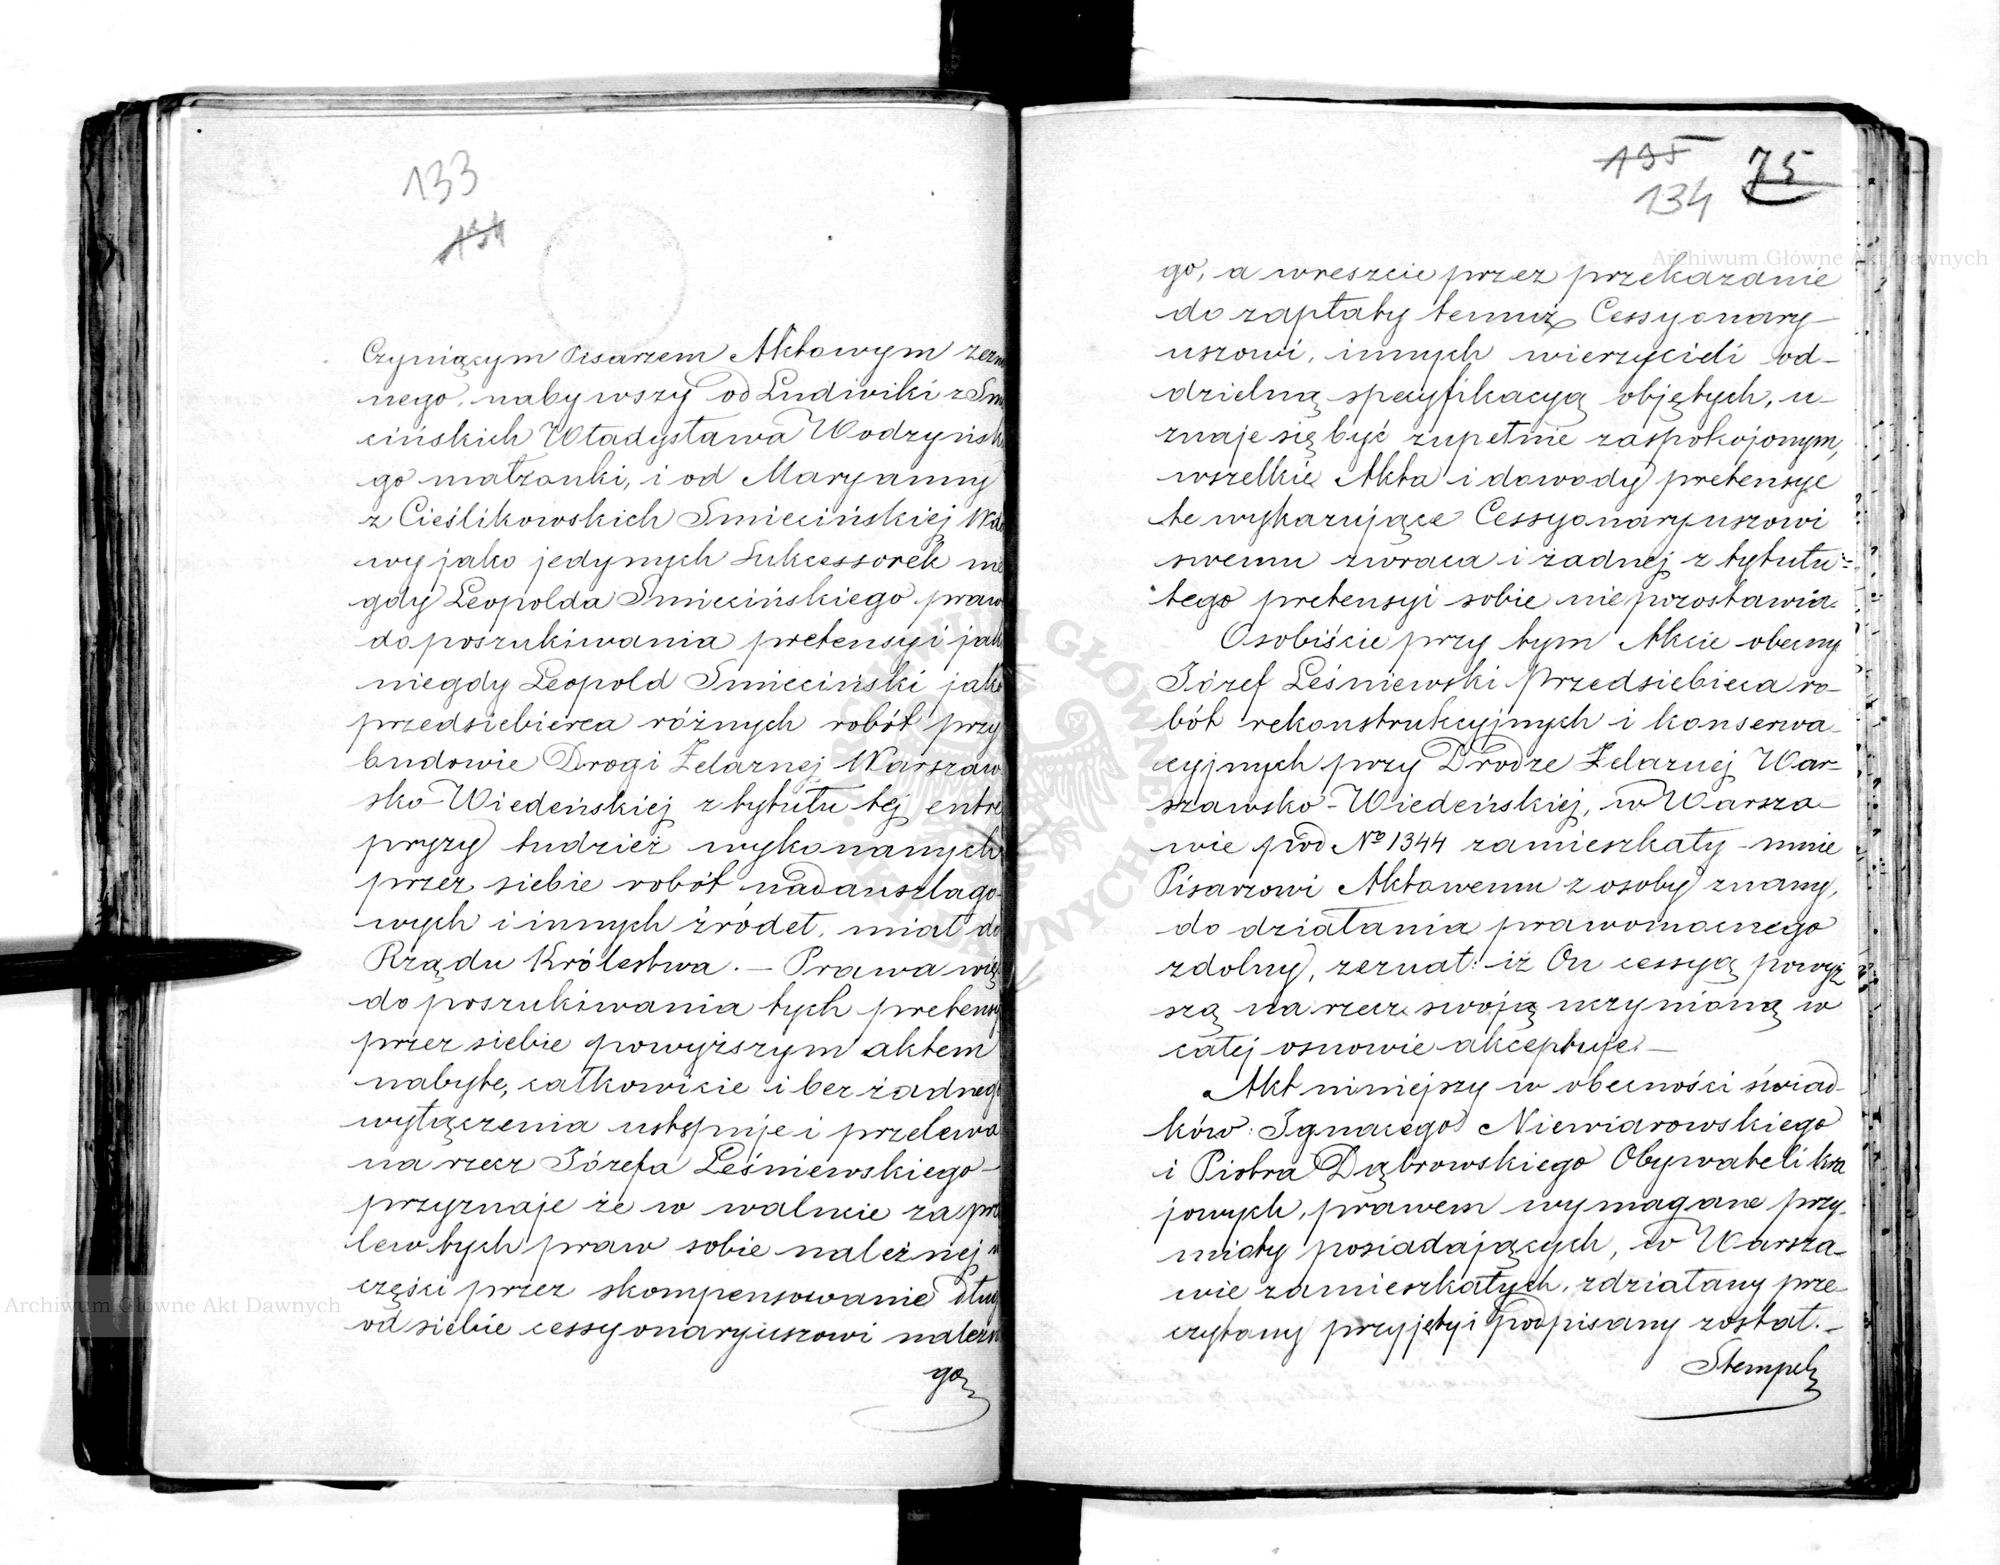 133
134
Czyniącym Pisarzem Aktowym zezna
nego, nabywszy od Ludwiki z Smi
cińskich Władysława Wodzyńsk
go małżonki, i od Maryanny
z Cieślikowskich Smiecińskiej Wdo
wy jako jedynych Sukcessorek nie
gdy Leopolda Smiecińskiego praw
do poszukiwania pretensyi jak
niegdy Leopold Smieciński jako
przedsiebierca różnych robót przy
budowie Drogi Żelaznej Warszaw
sko-Wiedeńskiej z tytułu tej entre
pryzy tudzież wykonanych
przez siebie robót nadanszlago-
wych i innych źródeł, miał do
Rządu Królestwa. — Prawa więc
do poszukiwania tych pretensy
przez siebie powyższym aktem
nabyte, całkowicie i bez żadnego
wyłączenia ustępuje i przelewa
na rzecz Józefa Leśniewskiego –
przyznaje że w walucie za prze
lew tych praw sobie należnej w
części przez skompensowanie dług
od siebie cessyonaryuszowi należn
go
135
75
134
go, a wreszcie przez przekazanie
do zapłaty temuż Cessyonary-
uszowi, innych wierzycieli od-
dzielną specyfikacyą objętych, u-
znaje się być zupełnie zaspokojonym,
wszelkie Akta i dowody pretensye
te wykazujące Cessyonaryuszowi
swemu zwraca i żadnej z tytułu
tego pretensyi sobie nie pozostawia.
Osobiście przy tym Akcie obecny
Józef Leśniewski Przedsiebieca ro-
bót rekonstrukcyjnych i konserwa-
cyjnych przy Drodze Żelaznej War-
szawsko-Wiedeńskiej, w Warsza-
wie pod Nº 1344 zamieszkały – mnie
Pisarzowi Aktowemu z osoby znany,
do działania prawomocnego
zdolny, zeznał: iż On cessyą powyż
szą na rzecz swoją uczynioną w
całej osnowie akceptuje. —
Akt niniejszy w obecności świad-
ków: Ignacego Niewiarowskiego
i Piotra Dąbrowskiego Obywateli kra
jowych, prawem wymagane przy-
mioty posiadających, w Warsza-
wie zamieszkałych, zdziałany prze-
czytany przyjęty i podpisany został. –
Stempel
Archiwum Główne Akt Dawnych
Archiwum Główne Akt Dawnych
ARCHIWUM GŁÓWNE AKT DAWNYCH